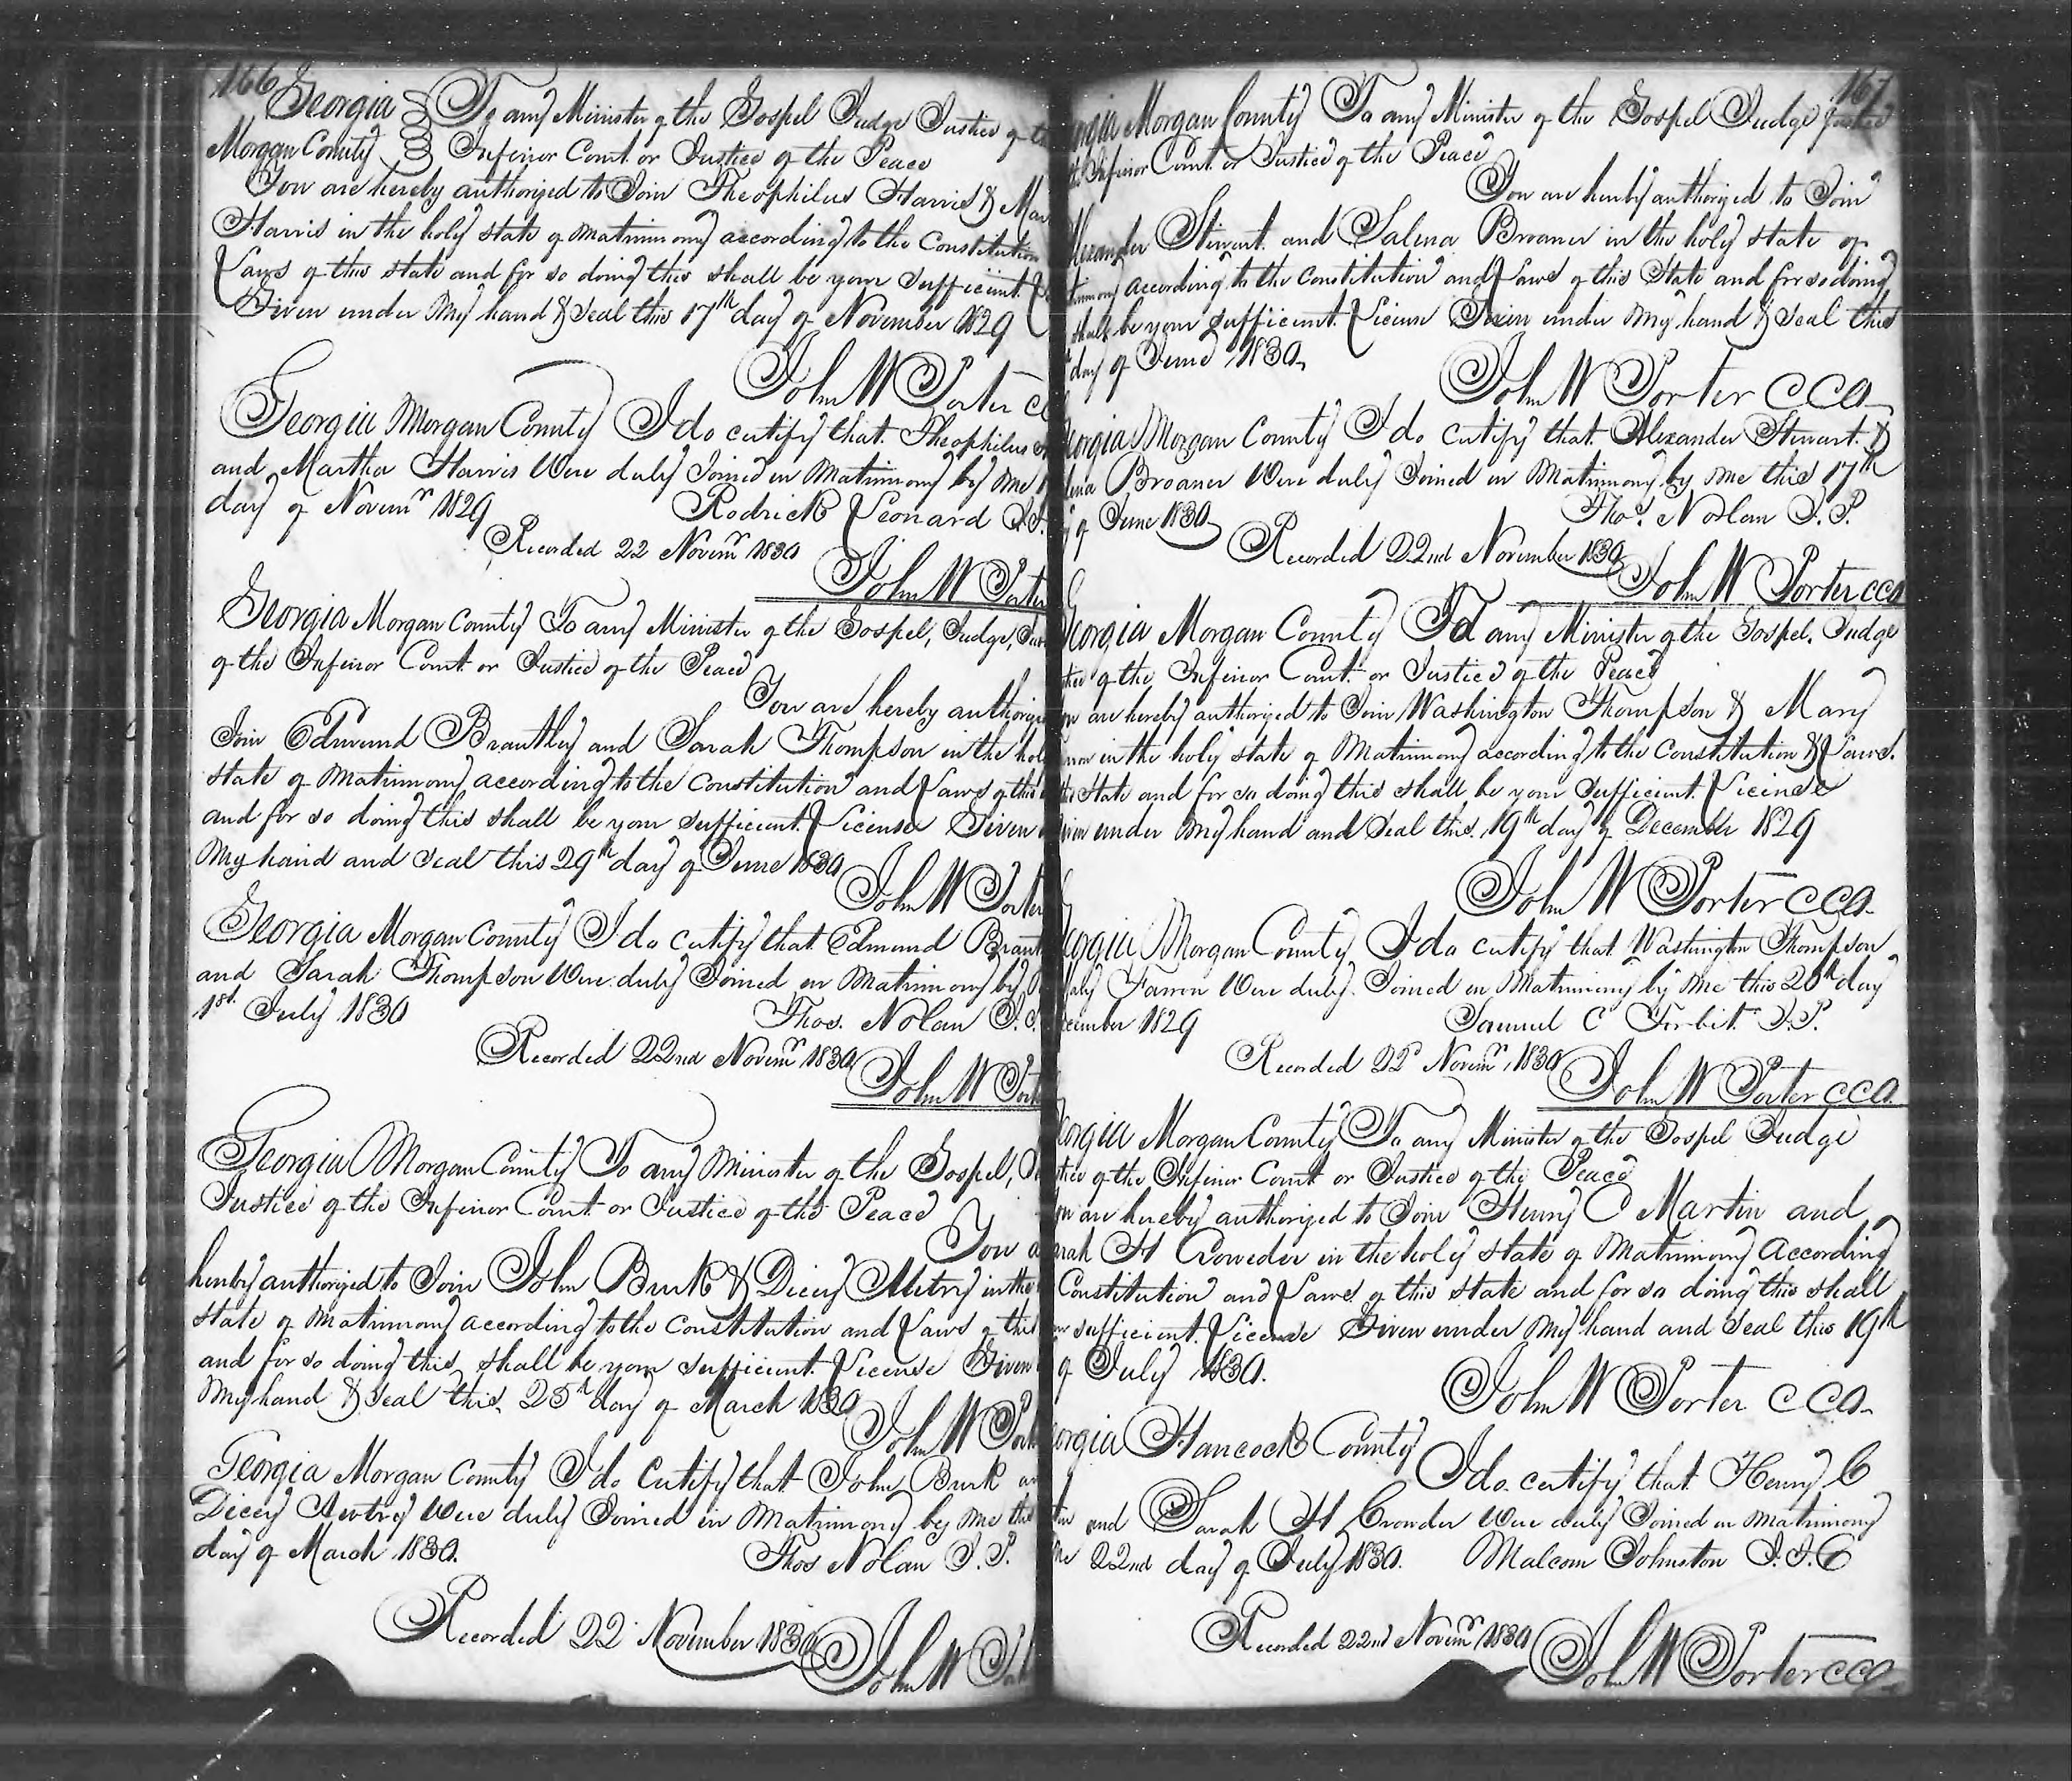 166
Georgia To any Minister of the Gospel Judge Justice of
Morgan County Inferior Court or Justice of the Peace
You are hereby authorized to Join Theophilus Harris & Mar
Harris in the holy state of matrimony according to the Constitution
Laws of this state and for so doing this shall be your sufficient
Given under My hand & Seal this 17th day of November 1829
John W Porter CC
Georgia Morgan County I do certify that Theophilus
and Martha Harris Were duly Joined in Matrimony by me
day of Novemr 1829 Rodrick Leonard J.
Recorded 22 Novemr 1830
John W Porter
Georgia Morgan County To any Minister of the Gospel, Judge, Jus
of the Inferior Court or Justice of the Peace
You are hereby authorize
Join Edmund Brantley and Sarah Thompson in the hol
state of Matrimony according to the Constitution and Laws of this
and for so doing this shall be your sufficient License Given
My hand and Seal this 29th day of June 1830
John W Porter
Georgia Morgan County I do certify that Edmund Brant
and Sarah Thompson Were duly Joined in Matrimony by
1st July 1830 Thos. Nolan J.
Recorded 22nd Novemr 1830
John W Porte
Georgia Morgan County To any Minister of the Gospel, Ju
Justice of the Inferior Court or Justice of the Peace
You a
hereby authorized to Join John Burk & Dicey Autry in the
state of Matrimony according to the Constitution and Laws of this
and for so doing this shall be your sufficient License Given
My hand & Seal this 25th day of March 1830
John W Port
Georgia Morgan County I do Certify that John Burk an
Dicey Autry Were duly Joined in Matrimony by Me this
day of March 1830. Thos Nolan J. P.
Recorded 22 November 1830
John W Port
167
orgia Morgan County To any Minister of the Gospel Judge Justice
the Inferior Court or Justice of the Peace
You are hereby authorized to Join
Alexander Stewart and Salena Broaner in the holy state of
trimony according to the Constitution and Laws of this State and for so doing
shall be your sufficient License Given under My hand & Seal this
day of June 1830,
John W Porter CCO
eorgia Morgan County I do Certify that Alexander Stewart &
lena Broaner Were duly Joined in Matrimony by me this 17th
of June 1830 Thos. Nolan J. P.
Recorded 22nd November 1830
John W Porter CCO
Georgia Morgan County To any Minister of the Gospel, Judge
stice of the Inferior Court or Justice of the Peace
You are hereby authorized to Join Washington Thompson & Mary
in the holy state of Matrimony according to the Constitution & Laws.
this State and for so doing this shall be your Sufficient License
Given under My hand and Seal this 19th day of December 1829
John W Porter CCO.
eorgia Morgan County I do certify that Washington Thompson
Mary Farron Were duly Joined in Matrimony by me this 20th day
ecember 1829 Samuel C Torbit J. P.
Recorded 22d Novemr, 1830
John W Porter CCO.
eorgia Morgan County To any Minister of the Gospel Judge
stice of the Inferior Court or Justice of the Peace
You are hereby authorized to Join Henry C Martin and
arah H Croweder in the holy state of Matrimony According
Constitution and Laws of this state and for so doing this shall
sufficient License Given under My hand and Seal this 19th
of July 1830.
John W Porter CCO.
eorgia Hancock County
I do certify that Henry C
tin and Sarah H Crowder Were duly Joined in Matrimony
22nd day of July 1830. Malcom Johnston J. I. C
Recorded 22nd Novemr 1830
John W Porter CCO